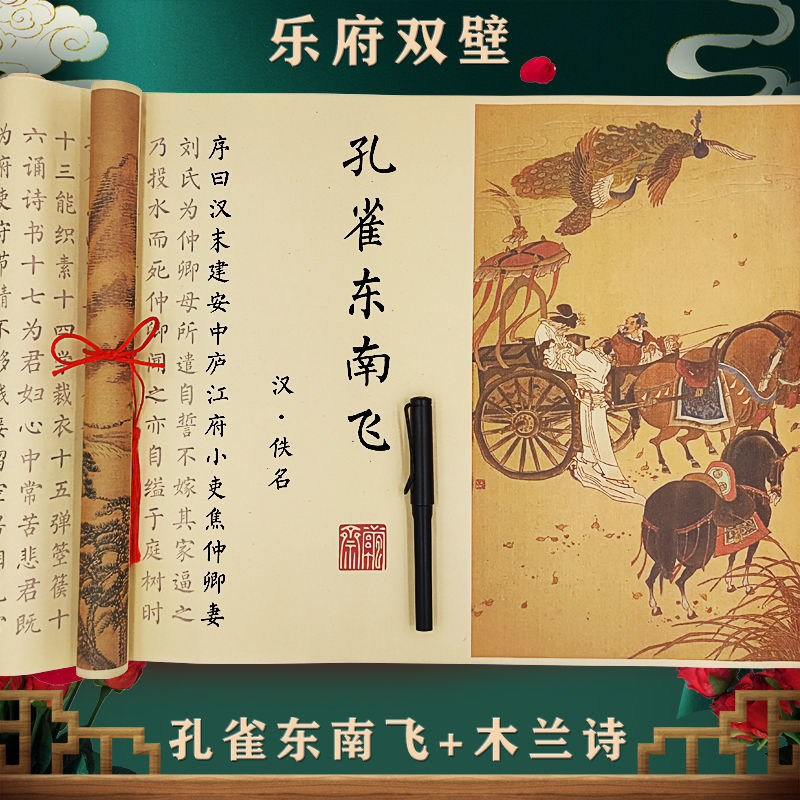 乐府双壁
孔雀东南飞
汉·佚名
序曰汉末建安中庐江府小吏焦仲卿妻
刘氏为仲卿母所遣自誓不嫁其家逼之
乃投水而死仲卿闻之亦自缢于庭树时
十三能织素十四学裁衣十五弹箜篌十
六诵诗书十七为君妇心中常苦悲君既
为府吏守节情不移贱妾留空房相见
孔雀东南飞+木兰诗